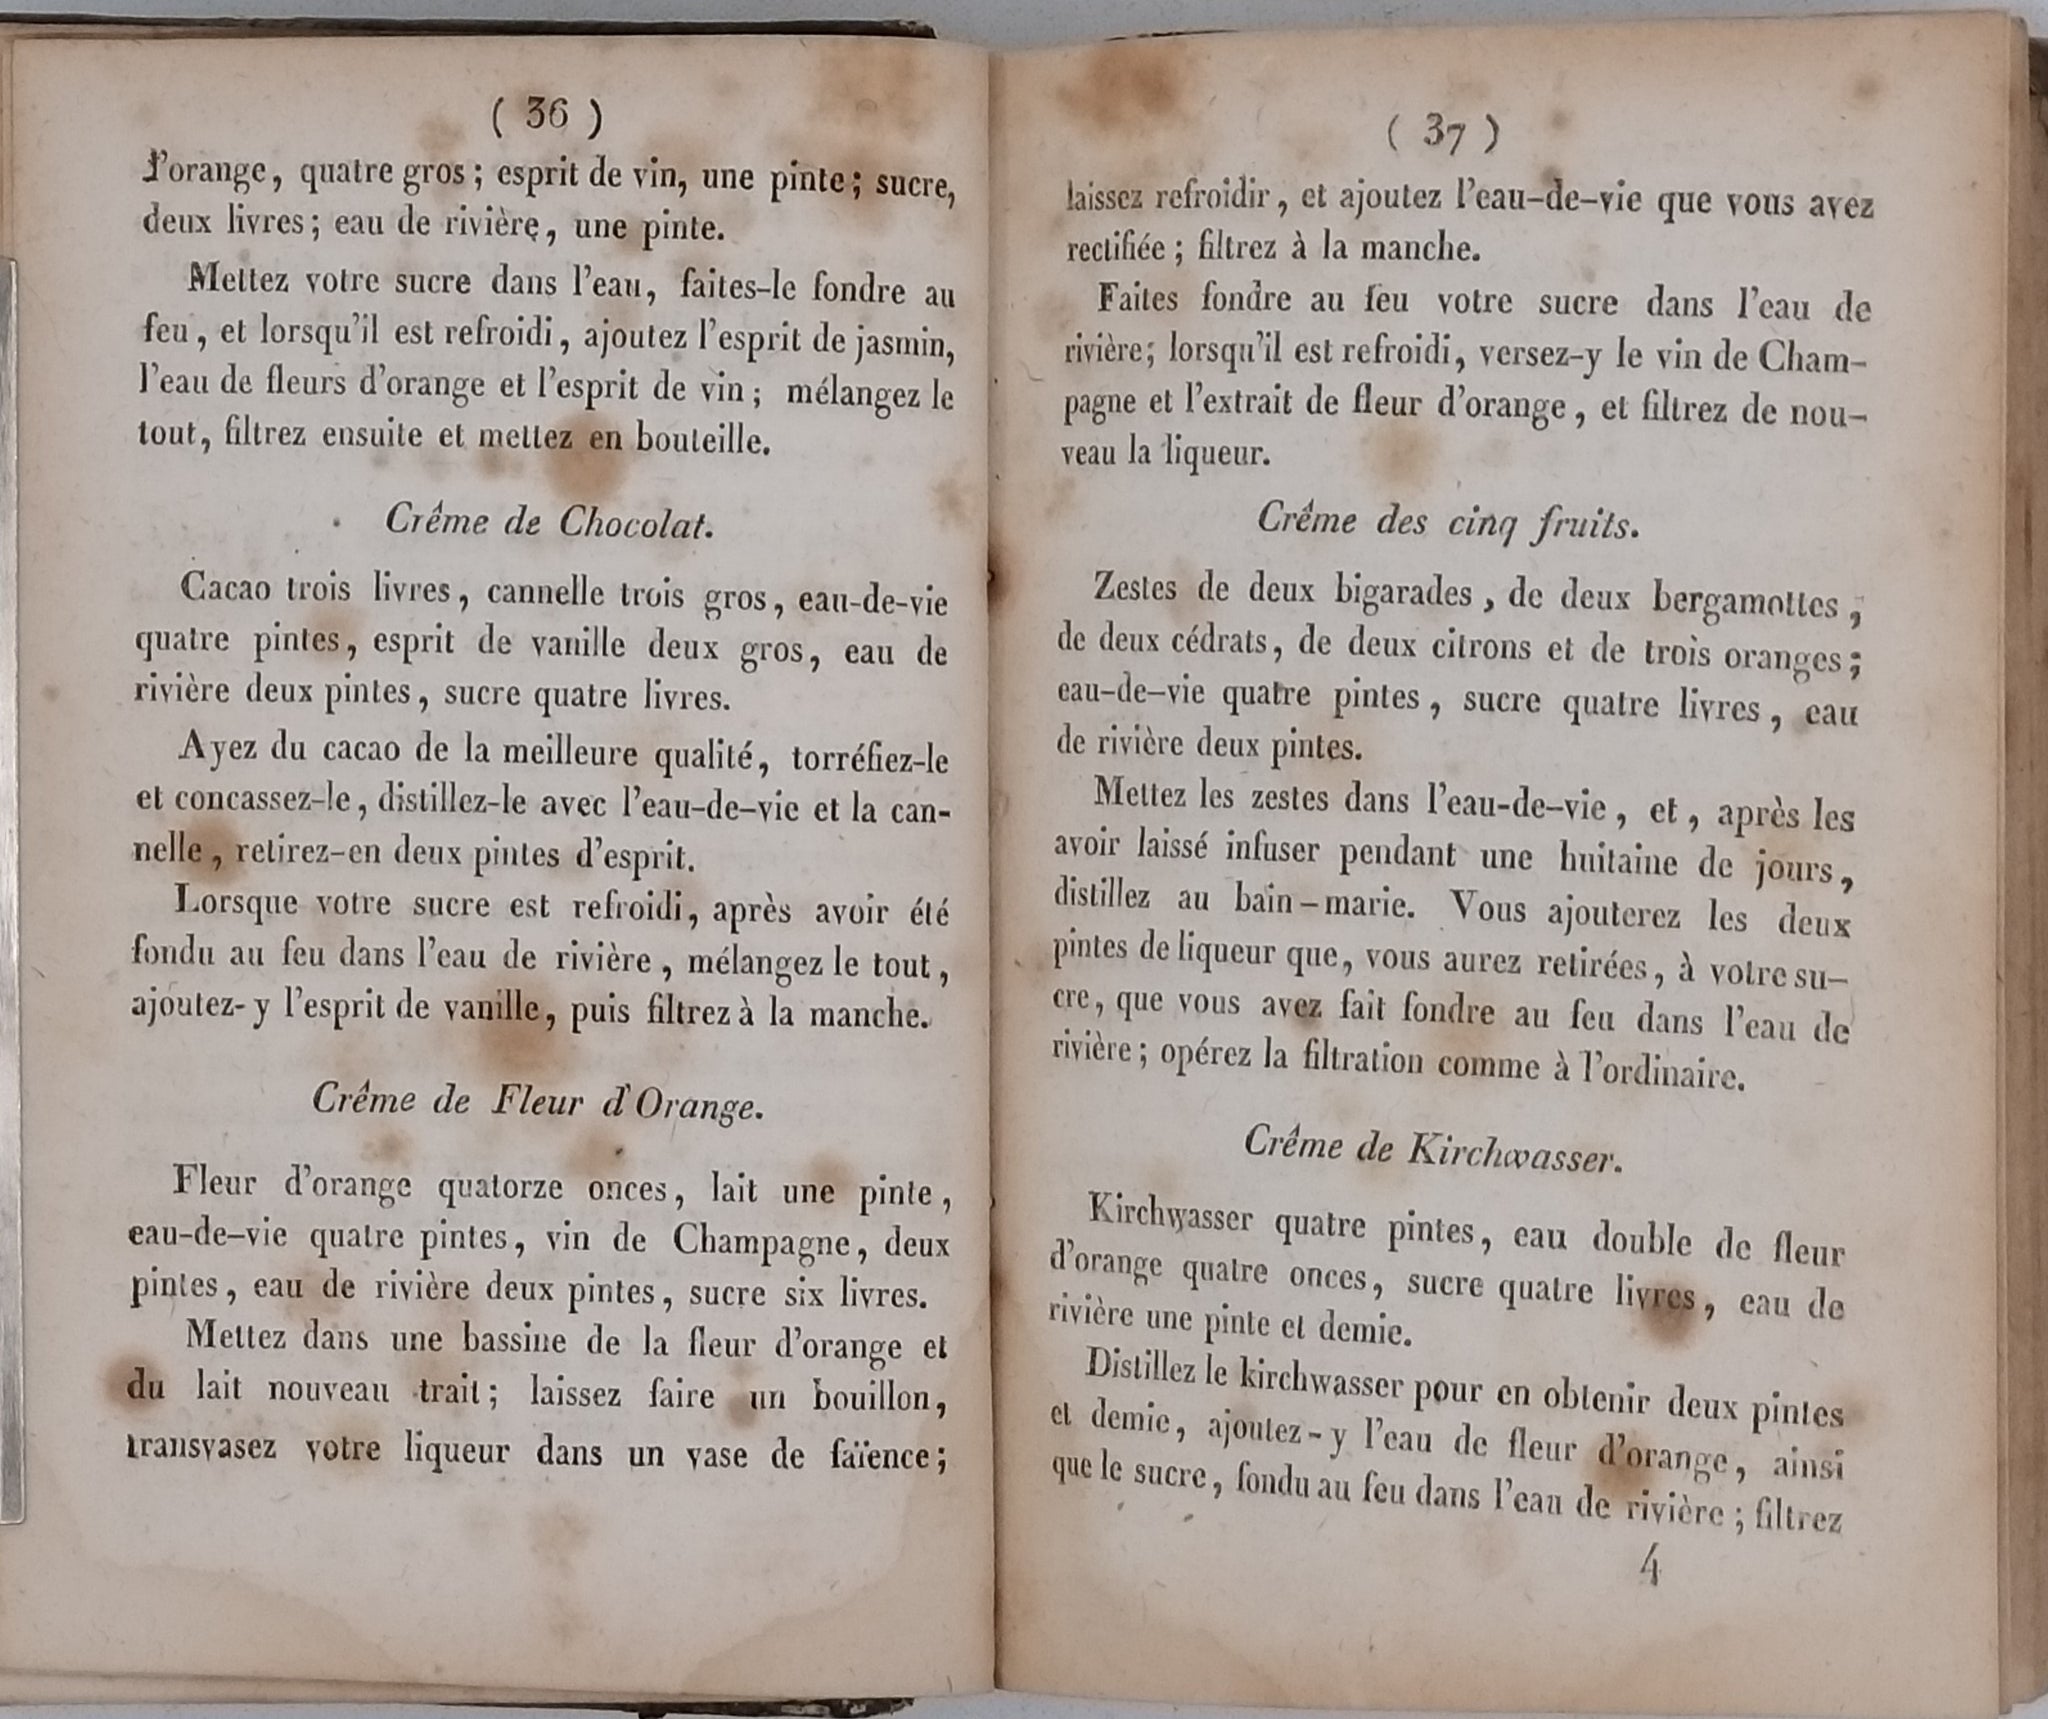 ( 36 )
d'orange, quatre gros ; esprit de vin, une pinte ; sucre,
deux livres ; eau de rivière, une pinte.
Mettez votre sucre dans l'eau, faites-le fondre au
feu, et lorsqu'il est refroidi, ajoutez l'esprit de jasmin,
l'eau de fleurs d'orange et l'esprit de vin ; mélangez le
tout, filtrez ensuite et mettez en bouteille.
Crême de Chocolat.
Cacao trois livres, cannelle trois gros, eau-de-vie
quatre pintes, esprit de vanille deux gros, eau de
rivière deux pintes, sucre quatre livres.
Ayez du cacao de la meilleure qualité, torréfiez-le
et concassez-le, distillez-le avec l'eau-de-vie et la can-
nelle, retirez-en deux pintes d'esprit.
Lorsque votre sucre est refroidi, après avoir été
fondu au feu dans l'eau de rivière, mélangez le tout,
ajoutez-y l'esprit de vanille, puis filtrez à la manche.
Crême de Fleur d'Orange.
Fleur d'orange quatorze onces, lait une pinte,
eau-de-vie quatre pintes, vin de Champagne, deux
pintes, eau de rivière deux pintes, sucre six livres.
Mettez dans une bassine de la fleur d'orange et
du lait nouveau trait ; laissez faire un bouillon,
transvasez votre liqueur dans un vase de faïence ;
( 37 )
laissez refroidir, et ajoutez l'eau-de-vie que vous avez
rectifiée ; filtrez à la manche.
Faites fondre au feu votre sucre dans l'eau de
rivière ; lorsqu'il est refroidi, versez-y le vin de Cham-
pagne et l'extrait de fleur d'orange, et filtrez de nou-
veau la liqueur.
Crême des cinq fruits.
Zestes de deux bigarades, de deux bergamottes,
de deux cédrats, de deux citrons et de trois oranges ;
eau-de-vie quatre pintes, sucre quatre livres, eau
de rivière deux pintes.
Mettez les zestes dans l'eau-de-vie, et, après les
avoir laissé infuser pendant une huitaine de jours,
distillez au bain-marie. Vous ajouterez les deux
pintes de liqueur que, vous aurez retirées, à votre su-
cre, que vous avez fait fondre au feu dans l'eau de
rivière ; opérez la filtration comme à l'ordinaire.
Crême de Kirchwasser.
Kirchwasser quatre pintes, eau double de fleur
d'orange quatre onces, sucre quatre livres, eau de
rivière une pinte et demie.
Distillez le kirchwasser pour en obtenir deux pintes
et demie, ajoutez-y l'eau de fleur d'orange, ainsi
que le sucre, fondu au feu dans l'eau de rivière ; filtrez
4